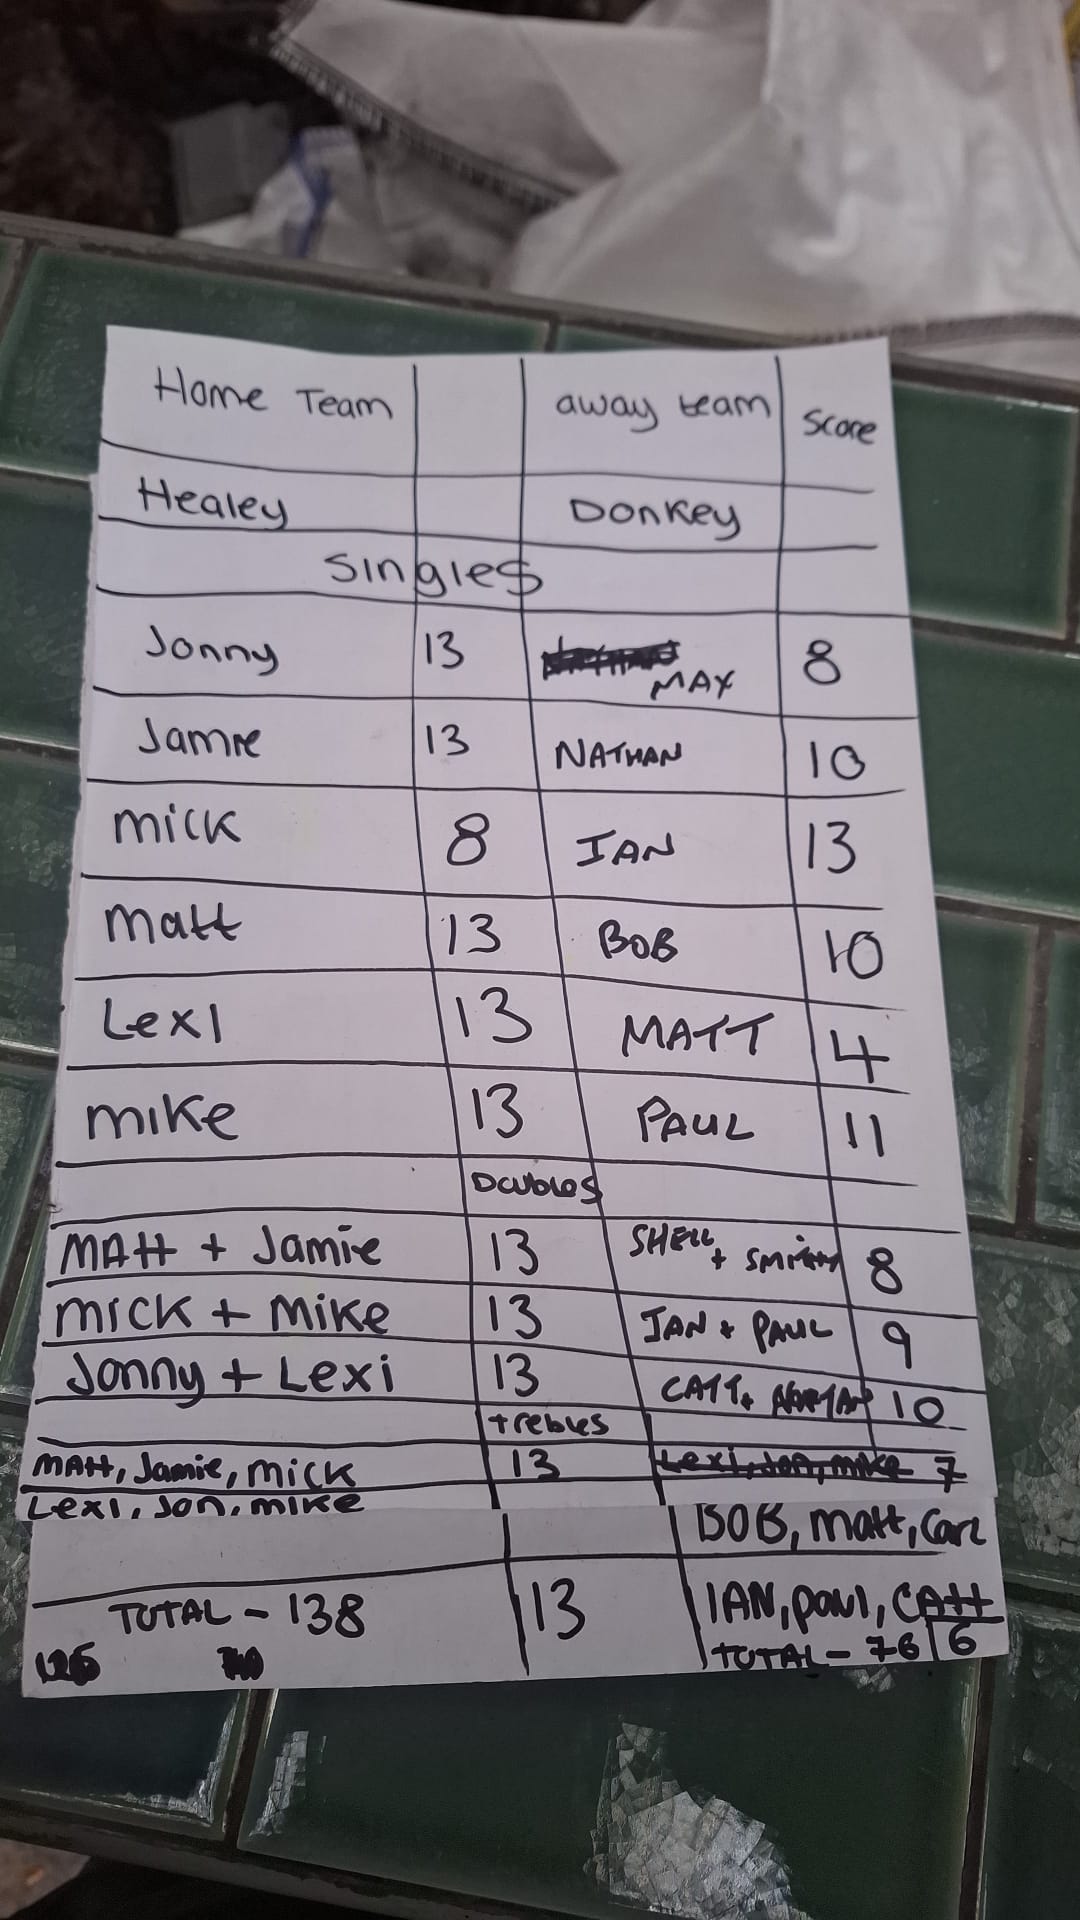 Home Team away team Score
Healey Donkey
Singles
Jonny 13 MAX 8
Jamie 13 NATHAN 10
mick 8 IAN 13
matt 13 BOB 10
Lexi 13 MATT 4
mike 13 PAUL 11
Doubles
MAtt + Jamie 13 SHELL + 8
mick + Mike 13 IAN + PAUL 9
Jonny + Lexi 13 CATT + 10
trebles
MAtt, Jamie, mick 13 Lexi, Jon, mike 7
Lexi, Jon, mike
BOB, matt, Carl
13 IAN, paul, CAtt
TOTAL - 138 TOTAL - 76 6